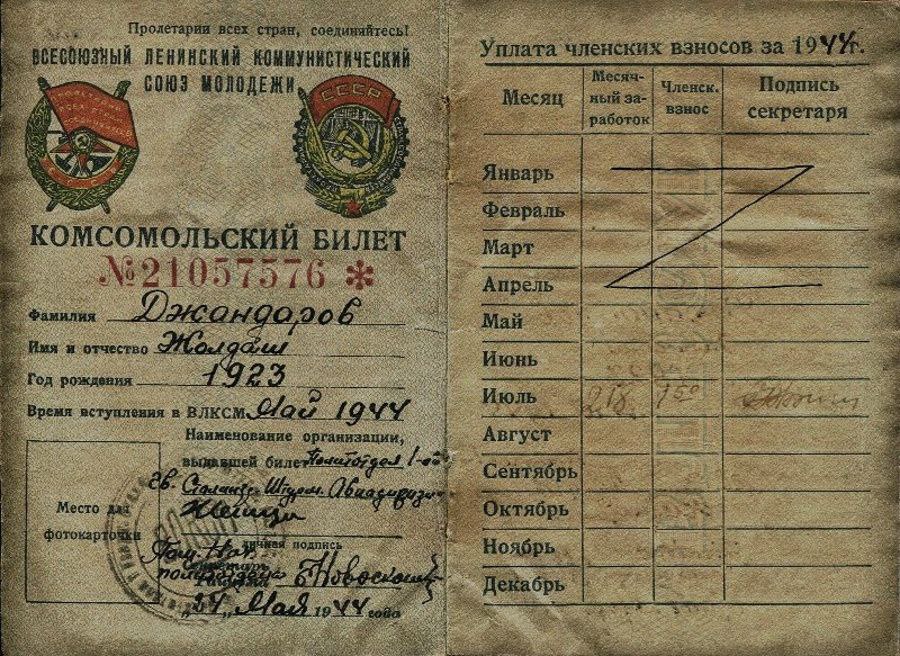 Пролетарии всех стран, соединяйтесь!
ВСЕСОЮЗНЫЙ ЛЕНИНСКИЙ КОММУНИСТИЧЕСКИЙ
СОЮЗ МОЛОДЕЖИ
СССР
КОМСОМОЛЬСКИЙ БИЛЕТ
№21057576 *
Фамилия Джандаров
Имя и отчество Жолдаш
Год рождения 1923
Время вступления в ВЛКСМ Май 1944
Наименование организации,
выдавшей билет Политотдел 1-ой
гв. Сталингр. Штурм. Авиадивизии
Место для
фотокарточки
личная подпись
Пом. Нач.
политотдела
"24" Мая 1944 года
Уплата членских взносов за 1944г.
Месяц Месяч-ный за-работок Членск. взнос Подпись секретаря
Январь
Февраль
Март
Апрель
Май
Июнь
Июль
Август
Сентябрь
Октябрь
Ноябрь
Декабрь